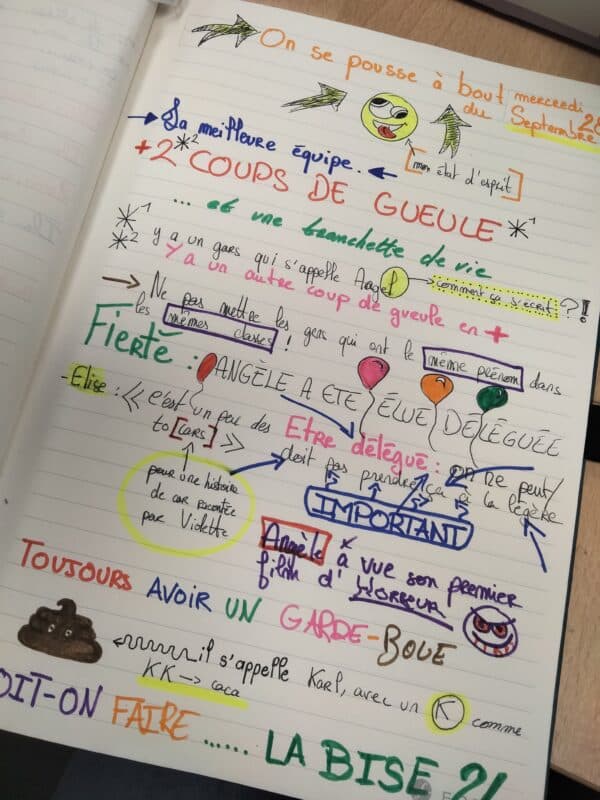 On se pousse à bout
mercredi
du
Septembre
La meilleure équipe.
[mon état d'esprit]
+2*² COUPS DE GUEULE *¹
... et une tranchette de vie
*¹
*² y a un gars qui s'appelle Angel → comment ça s'écrit ?!
Y a un autre coup de gueule en +
→ Ne pas mettre les gens qui ont le même prénom dans
les mêmes classes !
Fierté : ANGÈLE A ETE ÉLUE DÉLÉGUÉE
- Elise : << c'est un peu des
to[cars] >>
Etre délégué : on ne peut/
doit pas prendre ça à la légère
IMPORTANT
pour une histoire
de car racontée
par Violette
Angèle a vue son premier
film d'HORREUR
TOUJOURS AVOIR UN GARDE-BOUE
il s'appelle Karl, avec un K comme
KK → caca
DOIT-ON FAIRE ...... LA BISE ?!